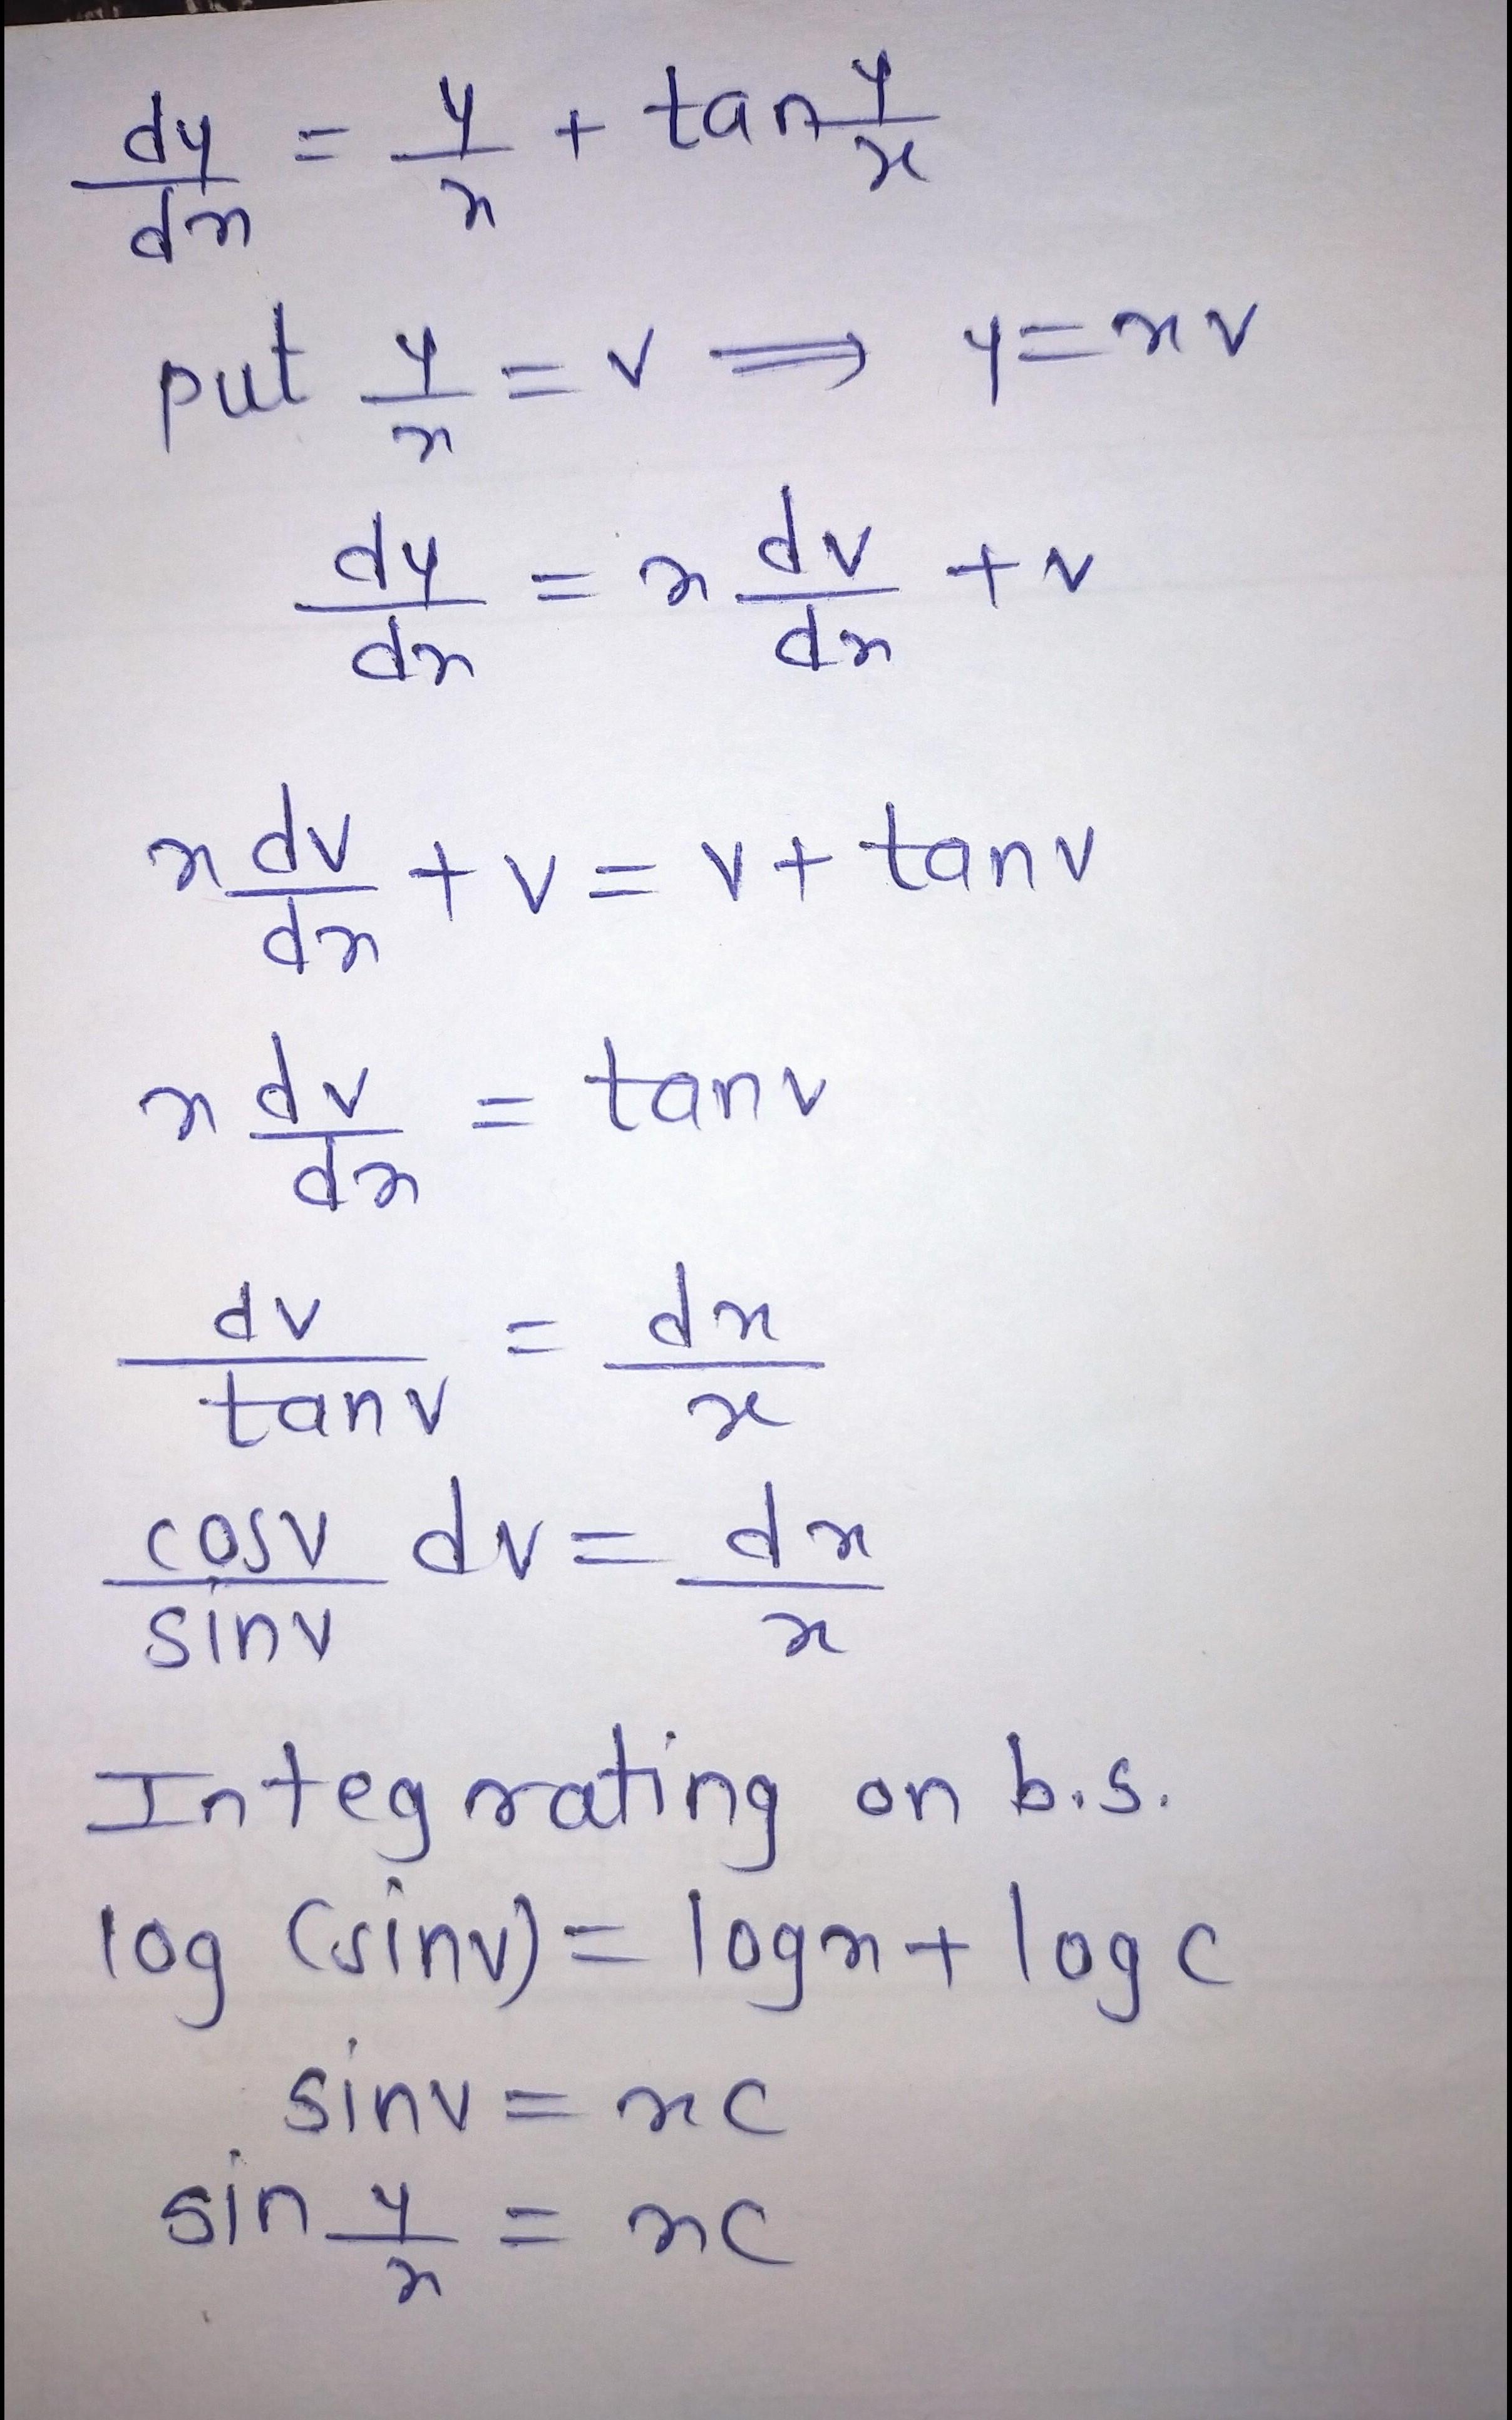 dy/dx = y/x + tan y/x
put y/x = v ⟹ y = xv
dy/dx = x dv/dx + v
x dv/dx + v = v + tanv
x dv/dx = tanv
dv/tanv = dx/x
cosv/sinv dv = dx/x
Integrating on b.s.
log (sinv) = logx + log c
sinv = xc
sin y/x = xc